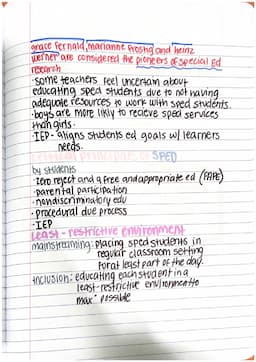 grace Fernald, marianne Frostig and heinz
werner are considered the pioneers of special Ed
research
• some teachers feel uncertain about
educating sped students due to not having
adequate resources to work with sped students.
• boys are more likly to recieve sped services
than girls.
• IEP - aligns students ed goals w/ learners
needs.
critical principals of SPED
by students
• zero reject and a free and appropriate ed (FAPE)
• parental participation
• nondiscriminatory edu
• procedural due process
• IEP
Least-restrictive environment
mainstreaming: Placing sped students in
regular classroom setting
for at least part of the day.
inclusion: educating each student in a
least-restrictive environment to
max. possible